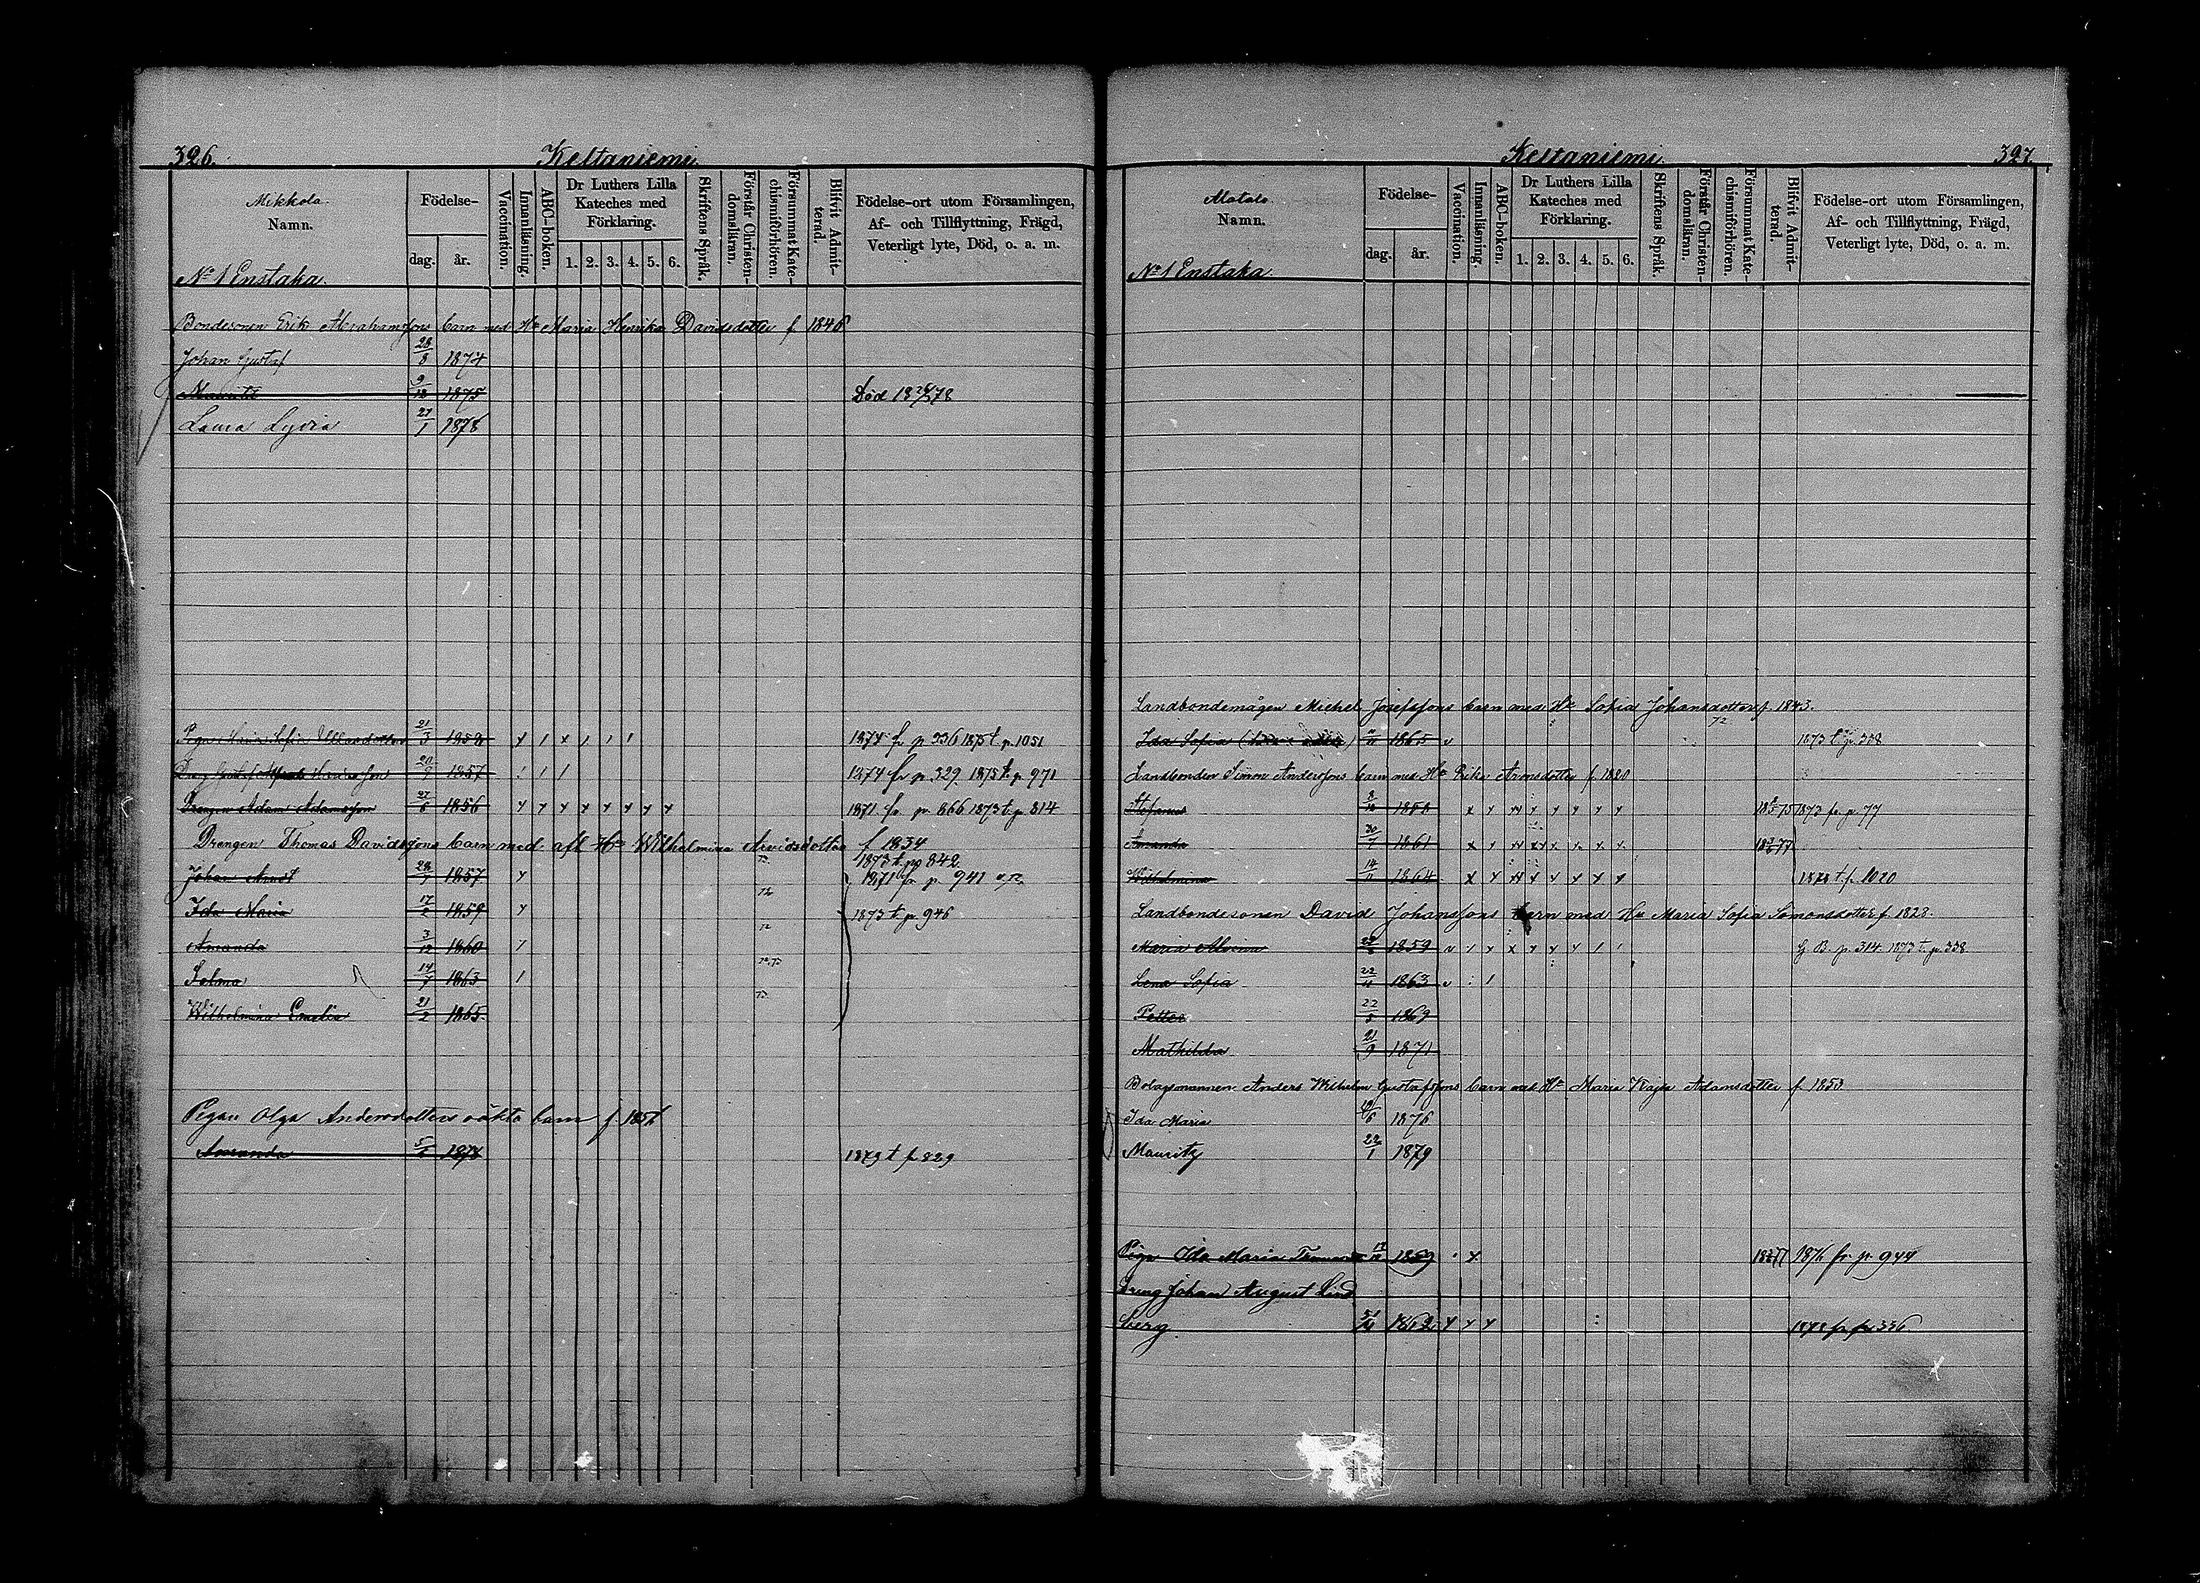 326. Keltaniemi.
Mikkola.
Namn.
Födelse-
dag. år.
Vaccination.
Innanläsning.
ABC-boken.
Dr Luthers Lilla Kateches med Förklaring.
1. 2. 3. 4. 5. 6.
Skriftens Språk.
Förstår Christendomsläran.
Försummat Katechismiförhören.
Blifvit Admitterad.
Födelse-ort utom Församlingen,
Af- och Tillflyttning, Frägd,
Veterligt lyte, Död, o. a. m.
No 1 Enstaka.
Bondesonen Erik Abrahamssons barn med Hu Maria Henrika Davidsdotter f 1846
Johan Gustaf 28/8 1874
Mauritz 9/12 1875 Död
Laura Lydia 27/1 1878
Pigan Maria Sofia 21/3 1858 1874 fr p 336 1875 t. p. 1051
Dreng Gustaf 20/7 1857 1874 fr p. 329. 1875 t. p. 971
Drengen Adam Adamsson 27/6 1856 1871 fr. p. 866 1873 t. p. 314
Drengen Thomas Davidssons barn med afl. Hu Wilhelmina Arvidsdotter f 1834
1873 t. p. 842
Johan 28/7 1857 1871 fr. p. 941
Ida Maria 17/2 1859 1873 t. p. 946
Amanda 3/12 1860
Selma 14/7 1863
Wilhelmina Emelia 21/2 1865
Pigan Olga Andersdotters oäkta barn f. 1856
Amanda 1878 1879 t p 829
Keltaniemi. 327
Matala
Namn.
Födelse-
dag. år.
Vaccination.
Innanläsning.
ABC-boken.
Dr Luthers Lilla Kateches med Förklaring.
1. 2. 3. 4. 5. 6.
Skriftens Språk.
Förstår Christendomsläran.
Försummat Katechismiförhören.
Blifvit Admitterad.
Födelse-ort utom Församlingen,
Af- och Tillflyttning, Frägd,
Veterligt lyte, Död, o. a. m.
No 1 Enstaka.
Landbondemågen Michel Josefssons barn med Hu Sofia Johansdotter f. 1843.
Ida Sofia 1865 1873 t. p. 338
Landbonden Simon Anderssons barn med Hu Rika Aronsdotter f. 1820
Stefanus 1858 1873 fr. p 77
Amanda 30/7 1861
Wilhelmina 14/11 1864 1878 t p. 1020
Landbondesonen David Johanssons barn med Hu Maria Sofia Simonsdotter f. 1828.
Maria 1859 p. 314. 1873 t. p. 338
Lena Sofia 22/4 1863
Petter 22/5 1869
Mathilda 21/9 1871
Bolagsmannen Anders Wilhelm Gustafssons barn med Hu Maria Kajsa Adamsdotter f 1853
Ida Maria 1876
Mauritz 22/1 1879
Piga Ida Maria 1859 fr. p. 944
Dreng Johan August Lind
berg 1862 1878 fr p 336